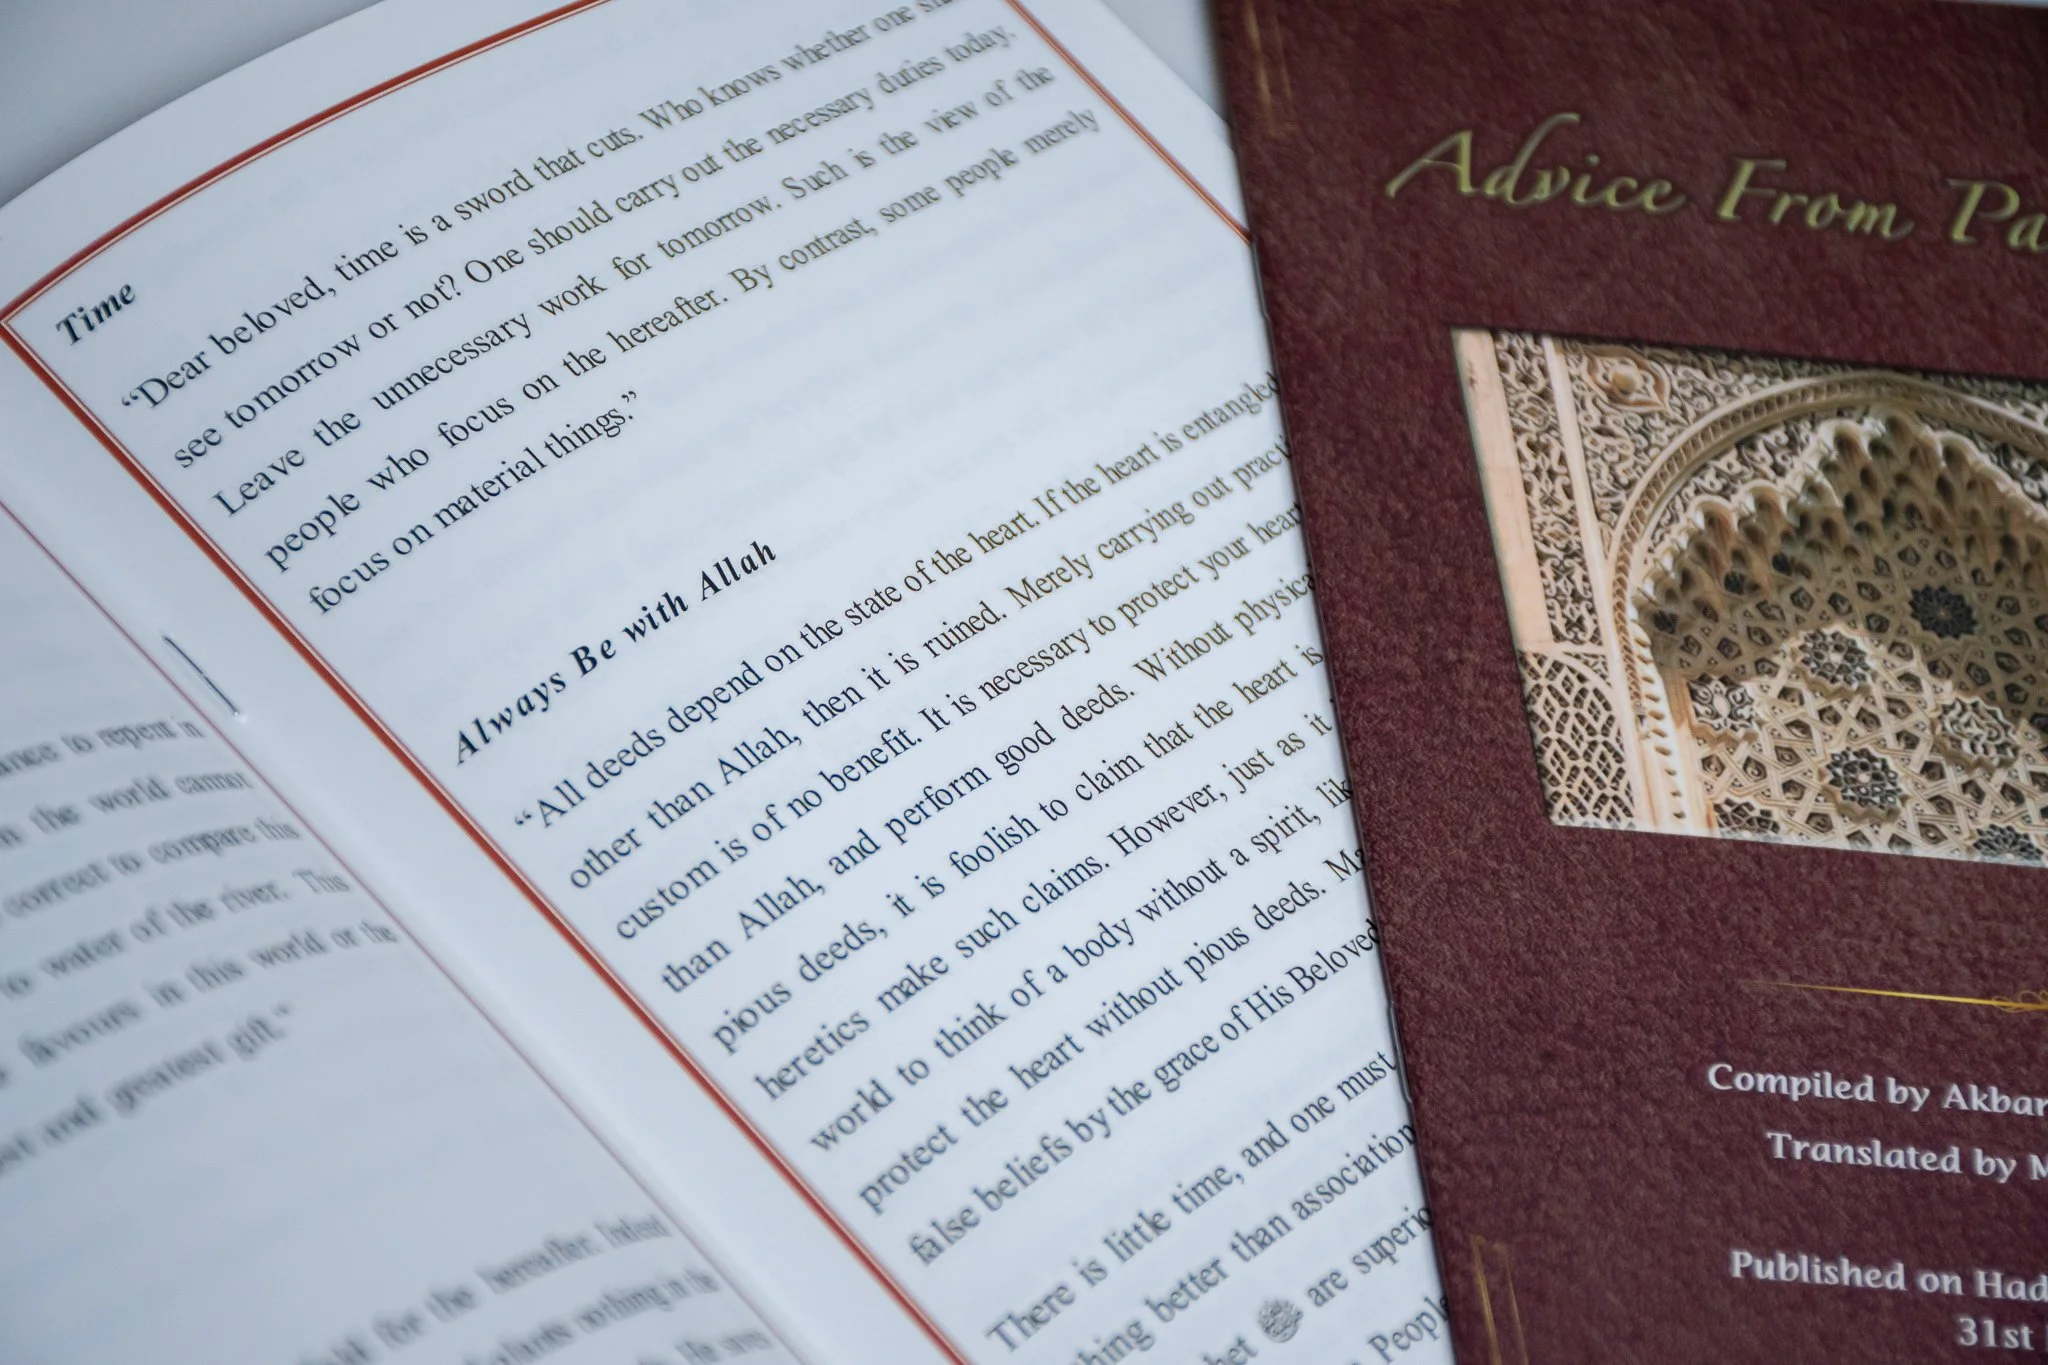 ance to repent in
the world cannot
correct to compare this
to water of the river. This
favours in this world or the
and greatest gift."
for the hereafter. Indeed
nothing in the
He says
Time
“Dear beloved, time is a sword that cuts. Who knows whether one
see tomorrow or not? One should carry out the necessary duties today.
Leave the unnecessary work for tomorrow. Such is the view of the
people who focus on the hereafter. By contrast, some people merely
focus on material things.”
Always Be with Allah
“All deeds depend on the state of the heart. If the heart is entangled
other than Allah, then it is ruined. Merely carrying out practi
custom is of no benefit. It is necessary to protect your heart
than Allah, and perform good deeds. Without physica
pious deeds, it is foolish to claim that the heart is
heretics make such claims. However, just as it
world to think of a body without a spirit, lik
protect the heart without pious deeds. Ma
false beliefs by the grace of His Beloved
There is little time, and one must
hing better than association
het ﷺ are superio
Peopl
Advice From Pa
Compiled by Akbar
Translated by M
Published on Had
31st